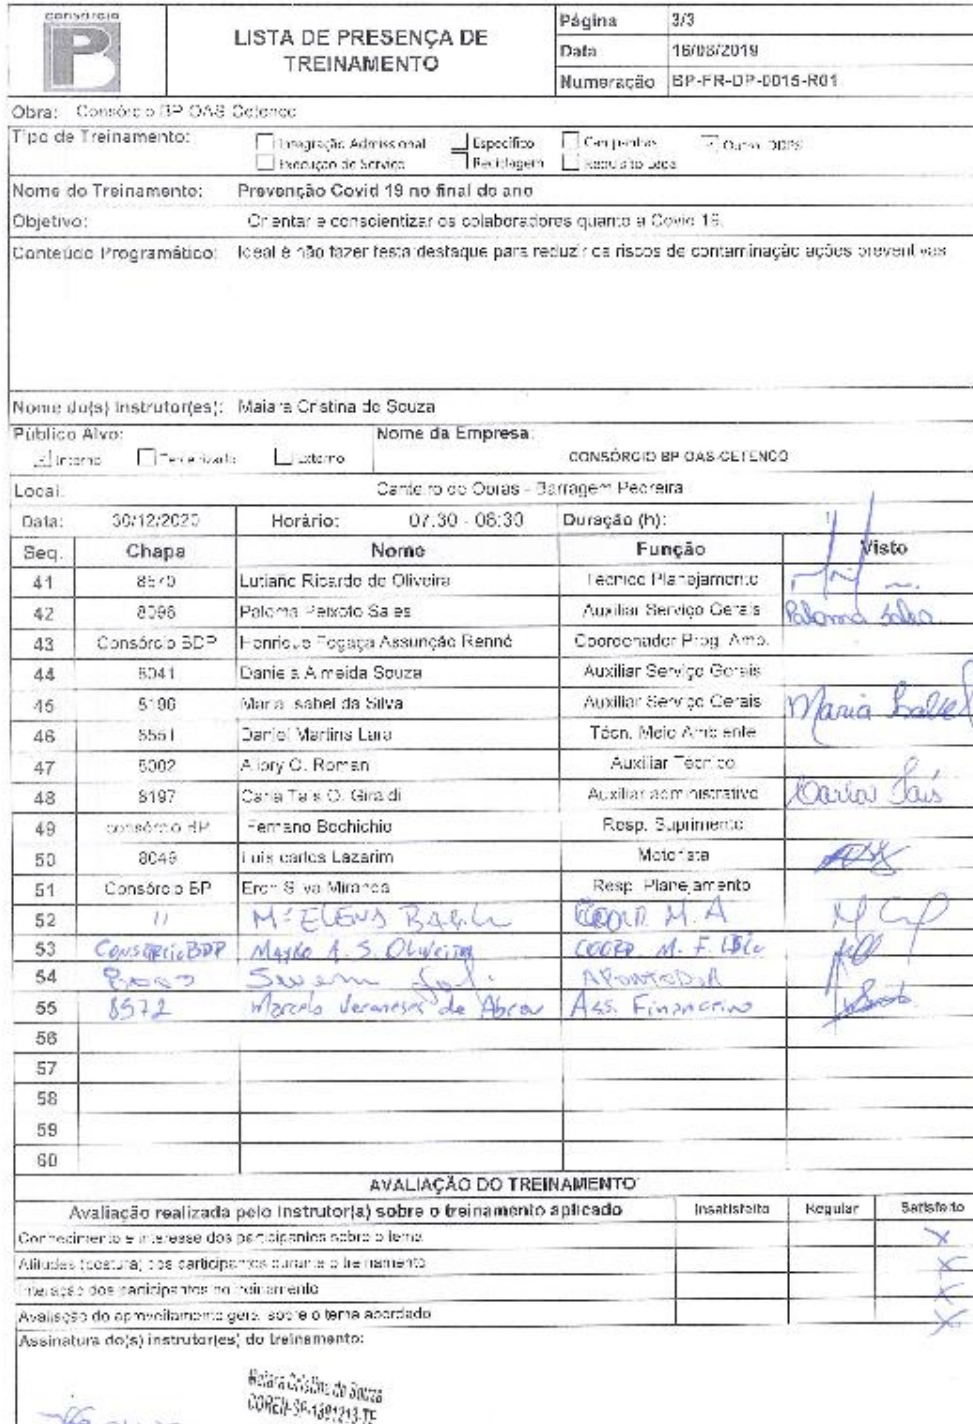 consórcio
LISTA DE PRESENÇA DE TREINAMENTO
Página 3/3
Data 16/08/2019
Numeração BP-FR-DP-0015-R01
Obra: Consórcio BP OAS Cetenco
Tipo de Treinamento: Integração Admissional Específico Campanhas Outro: DDPS
Execução de Serviço Reciclagem Requisito Legal
Nome do Treinamento: Prevenção Covid 19 no final do ano
Objetivo: Orientar e conscientizar os colaboradores quanto a Covid 19.
Conteúdo Programático: Ideal é não fazer festa destaque para reduzir os riscos de contaminação ações preventivas
Nome do(s) Instrutor(es): Maiara Cristina de Souza
Público Alvo: Nome da Empresa:
Interno Terceirizado Externo CONSÓRCIO BP OAS-CETENCO
Local: Canteiro de Obras - Barragem Pedreira
Data: 30/12/2020 Horário: 07:30 - 08:30 Duração (h): 1
Seq. Chapa Nome Função Visto
41 8570 Lutiano Ricardo de Oliveira Técnico Planejamento
42 8096 Paloma Peixoto Sales Auxiliar Serviço Gerais Paloma Sales
43 Consórcio BDP Henrique Fogaça Assunção Rennó Coordenador Prog. Amb.
44 8041 Daniela Almeida Souza Auxiliar Serviço Gerais
45 8196 Maria Isabel da Silva Auxiliar Serviço Gerais Maria Isabel
46 8551 Daniel Martins Lara Técn. Meio Ambiente
47 8002 Aliory C. Roman Auxiliar Técnico
48 8197 Carla Tais O. Giraldi Auxiliar administrativo Carla Tais
49 consórcio BP Fernano Bochichio Resp. Suprimento
50 8049 Luis carlos Lazarim Motorista
51 Consórcio BP Eron Silva Miranda Resp. Planejamento
52 11 Mª ELENS COORD. M. A
53 CONSÓRCIO BDP MAYKO A. S. OLIVEIRA COORD. M. F.
54 APONTADOR
55 8572 Marcelo Veroneses de Abreu Ass. Financeiro
56
57
58
59
60
AVALIAÇÃO DO TREINAMENTO
Avaliação realizada pelo Instrutor(a) sobre o treinamento aplicado Insatisfeito Regular Satisfeito
Conhecimento e interesse dos participantes sobre o tema X
Atitudes (postura) dos participantes durante o treinamento X
Interação dos participantes no treinamento X
Avaliação do aproveitamento geral sobre o tema abordado X
Assinatura do(s) instrutor(es) do treinamento:
Maiara Cristina de Souza
COREN-SP-1391213-TE